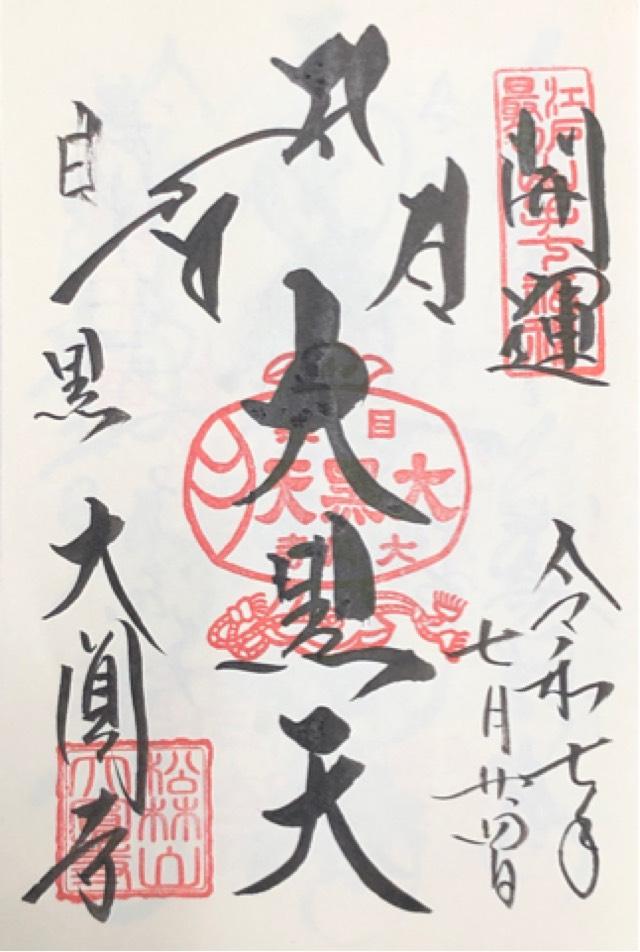 開運
江戸最初山手七福神
令和七年
七月廿四日
大黒天
目黒
大黒天
目黒 大圓寺
松林山
大圓寺